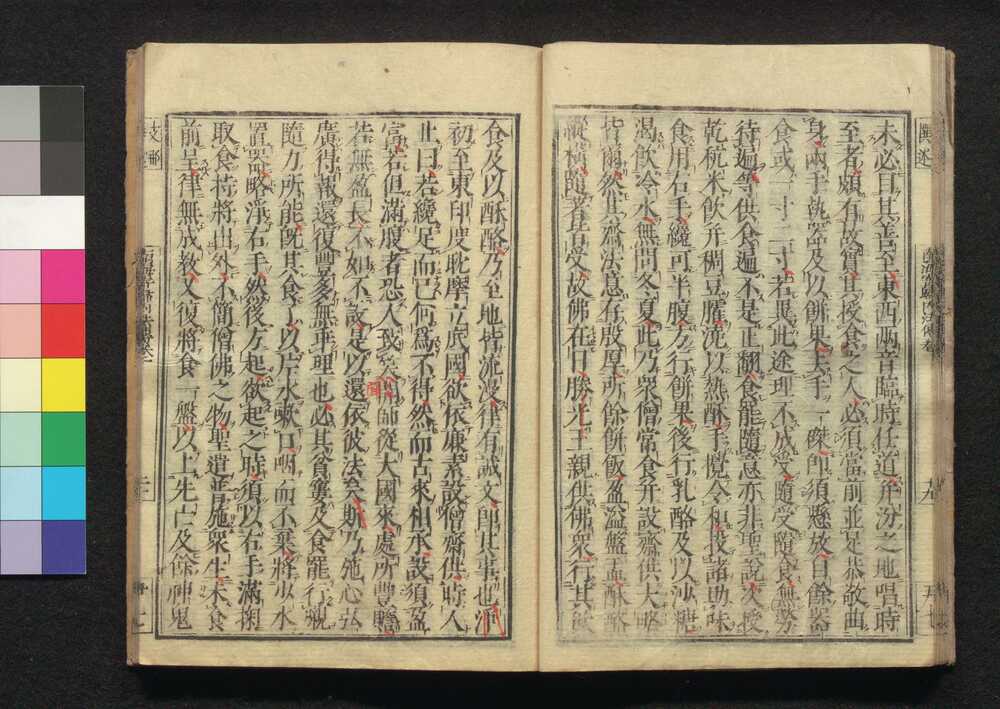 未必目其善至東西兩音臨時任道并汾之地唱時
至者頗有故實其授食之人必須當前並足恭敬曲
身兩手執器及以餅果去手一磔即須懸放自餘器
食或一寸二寸若異此途理不成受隨受隨食無勞
待遍等供食遍不是正翻食罷隨意亦非聖說次授
乾粳米飯并稠豆臛澆以熱酥手攪令和投諸助味
食用右手纔可半腹方行餅果後行乳酪及以沙糖
渴飲冷水無問冬夏此乃衆僧常食并設齋供大略
皆爾然其齋法意存殷厚所餘餅飯盈溢盤盂酥酪
縱橫隨著皆受故佛在日勝光王親供佛衆行其餘
食及以酥酪乃至地皆流漫律有誠文即其事也淨
初至東印度耽摩立底國欲依廉素設僧齋供時人
止曰若纔足而已何爲不得然而古來相承設須盈
富若但滿腹者恐人致笑聞師從大國來處所豐贍
若無盈長不如不設是以還依彼法矣斯乃施心弘
廣得報還復豐多無乖理也必其貧窶及食罷行嚫
隨力所能既其食了以片水漱口咽而不棄將少水
置器略淨右手然後方起欲起之時須以右手滿掬
取食持將出外不簡僧佛之物聖遣普施衆生未食
前呈律無成教又復將食一盤以上先亡及餘神鬼